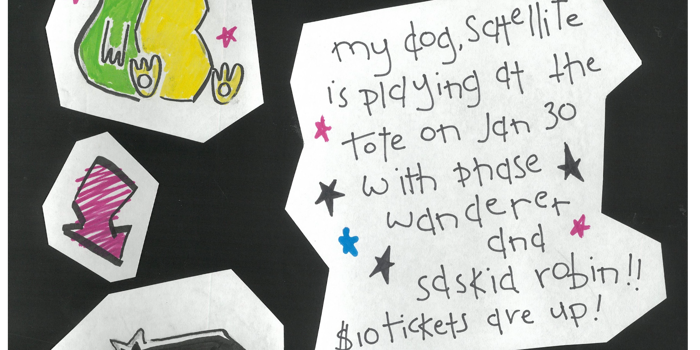 my dog, satellite
is playing at the
tote on Jan 30
with phase
wanderer
and
saskid robin!!
$10 tickets are up!